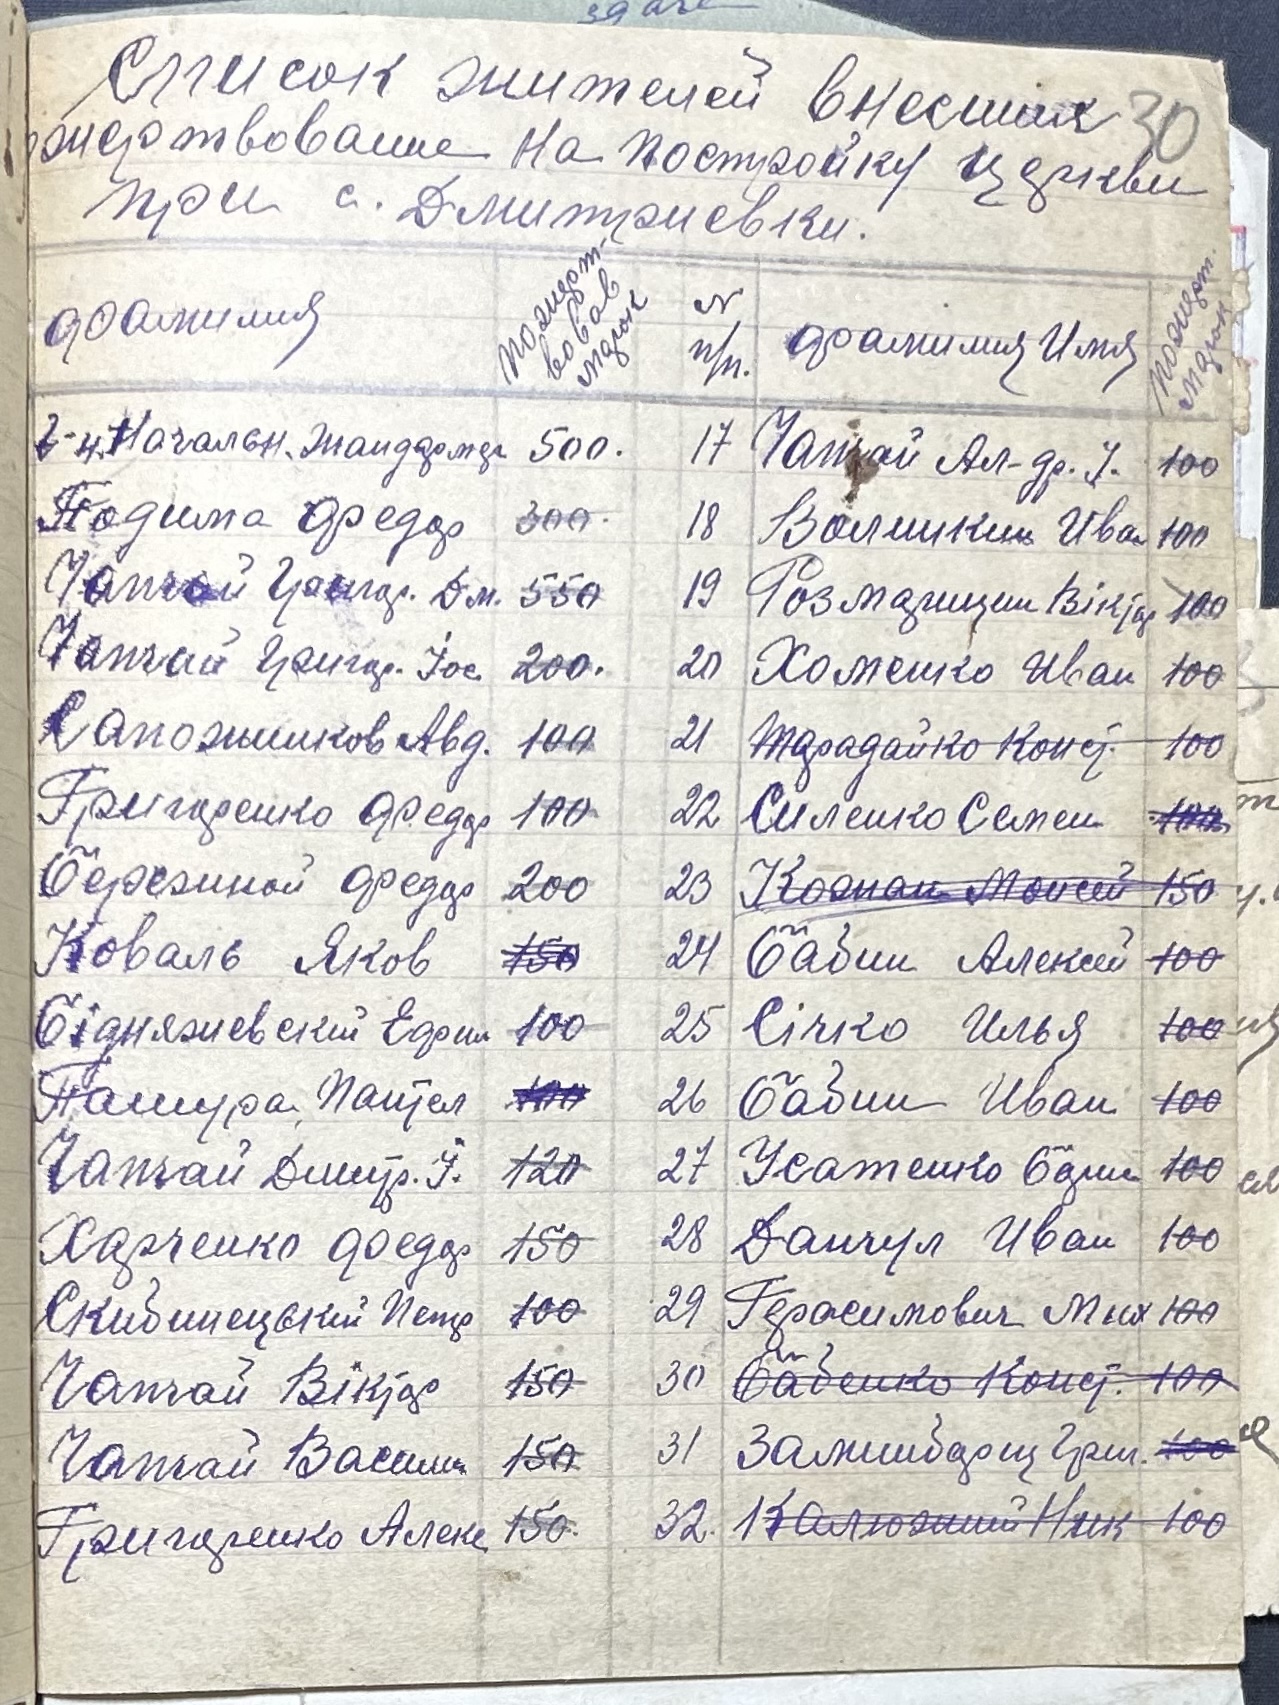 Список жителей внесших 30
жертвование на постройку церкви
при с. Дмитриевки.
фамилия пожерт-вовав марок N п/п. фамилия Имя пожерт. марок
Началн. жандарм 500. 17 Чапчай Ал-др. І. 100
Подима Федор 300. 18 Волошкин Иван 100
Чапчай Григор. Дм. 550 19 Розмарицин Віктор 100
Чапчай Григор. Іос. 200. 20 Хоменко Иван 100
Сапожников Авд. 100 21 Тарадайко Конст. 100
Григоренко Федор 100 22 Силенко Семен 100
Бережной Федор 200 23 Моисей 150
Коваль Яков 150 24 Бабин Алексей 100
Бідняжевский Ефрим 100 25 Січко Илья 100
Пашура Пантел 100 26 Бабин Иван 100
Чапчай Дмитр. І. 120 27 Усатенко 100
Харченко Федор 150 28 Данчул Иван 100
Скибинецький Петр 100 29 Герасимович Мих 100
Чапчай Віктор 150 30 Бабенко Конст. 100
Чапчай Василий 150 31 Замниборщ Григ. 100
Григоренко Алекс 150. 32. Калюжний Ник 100